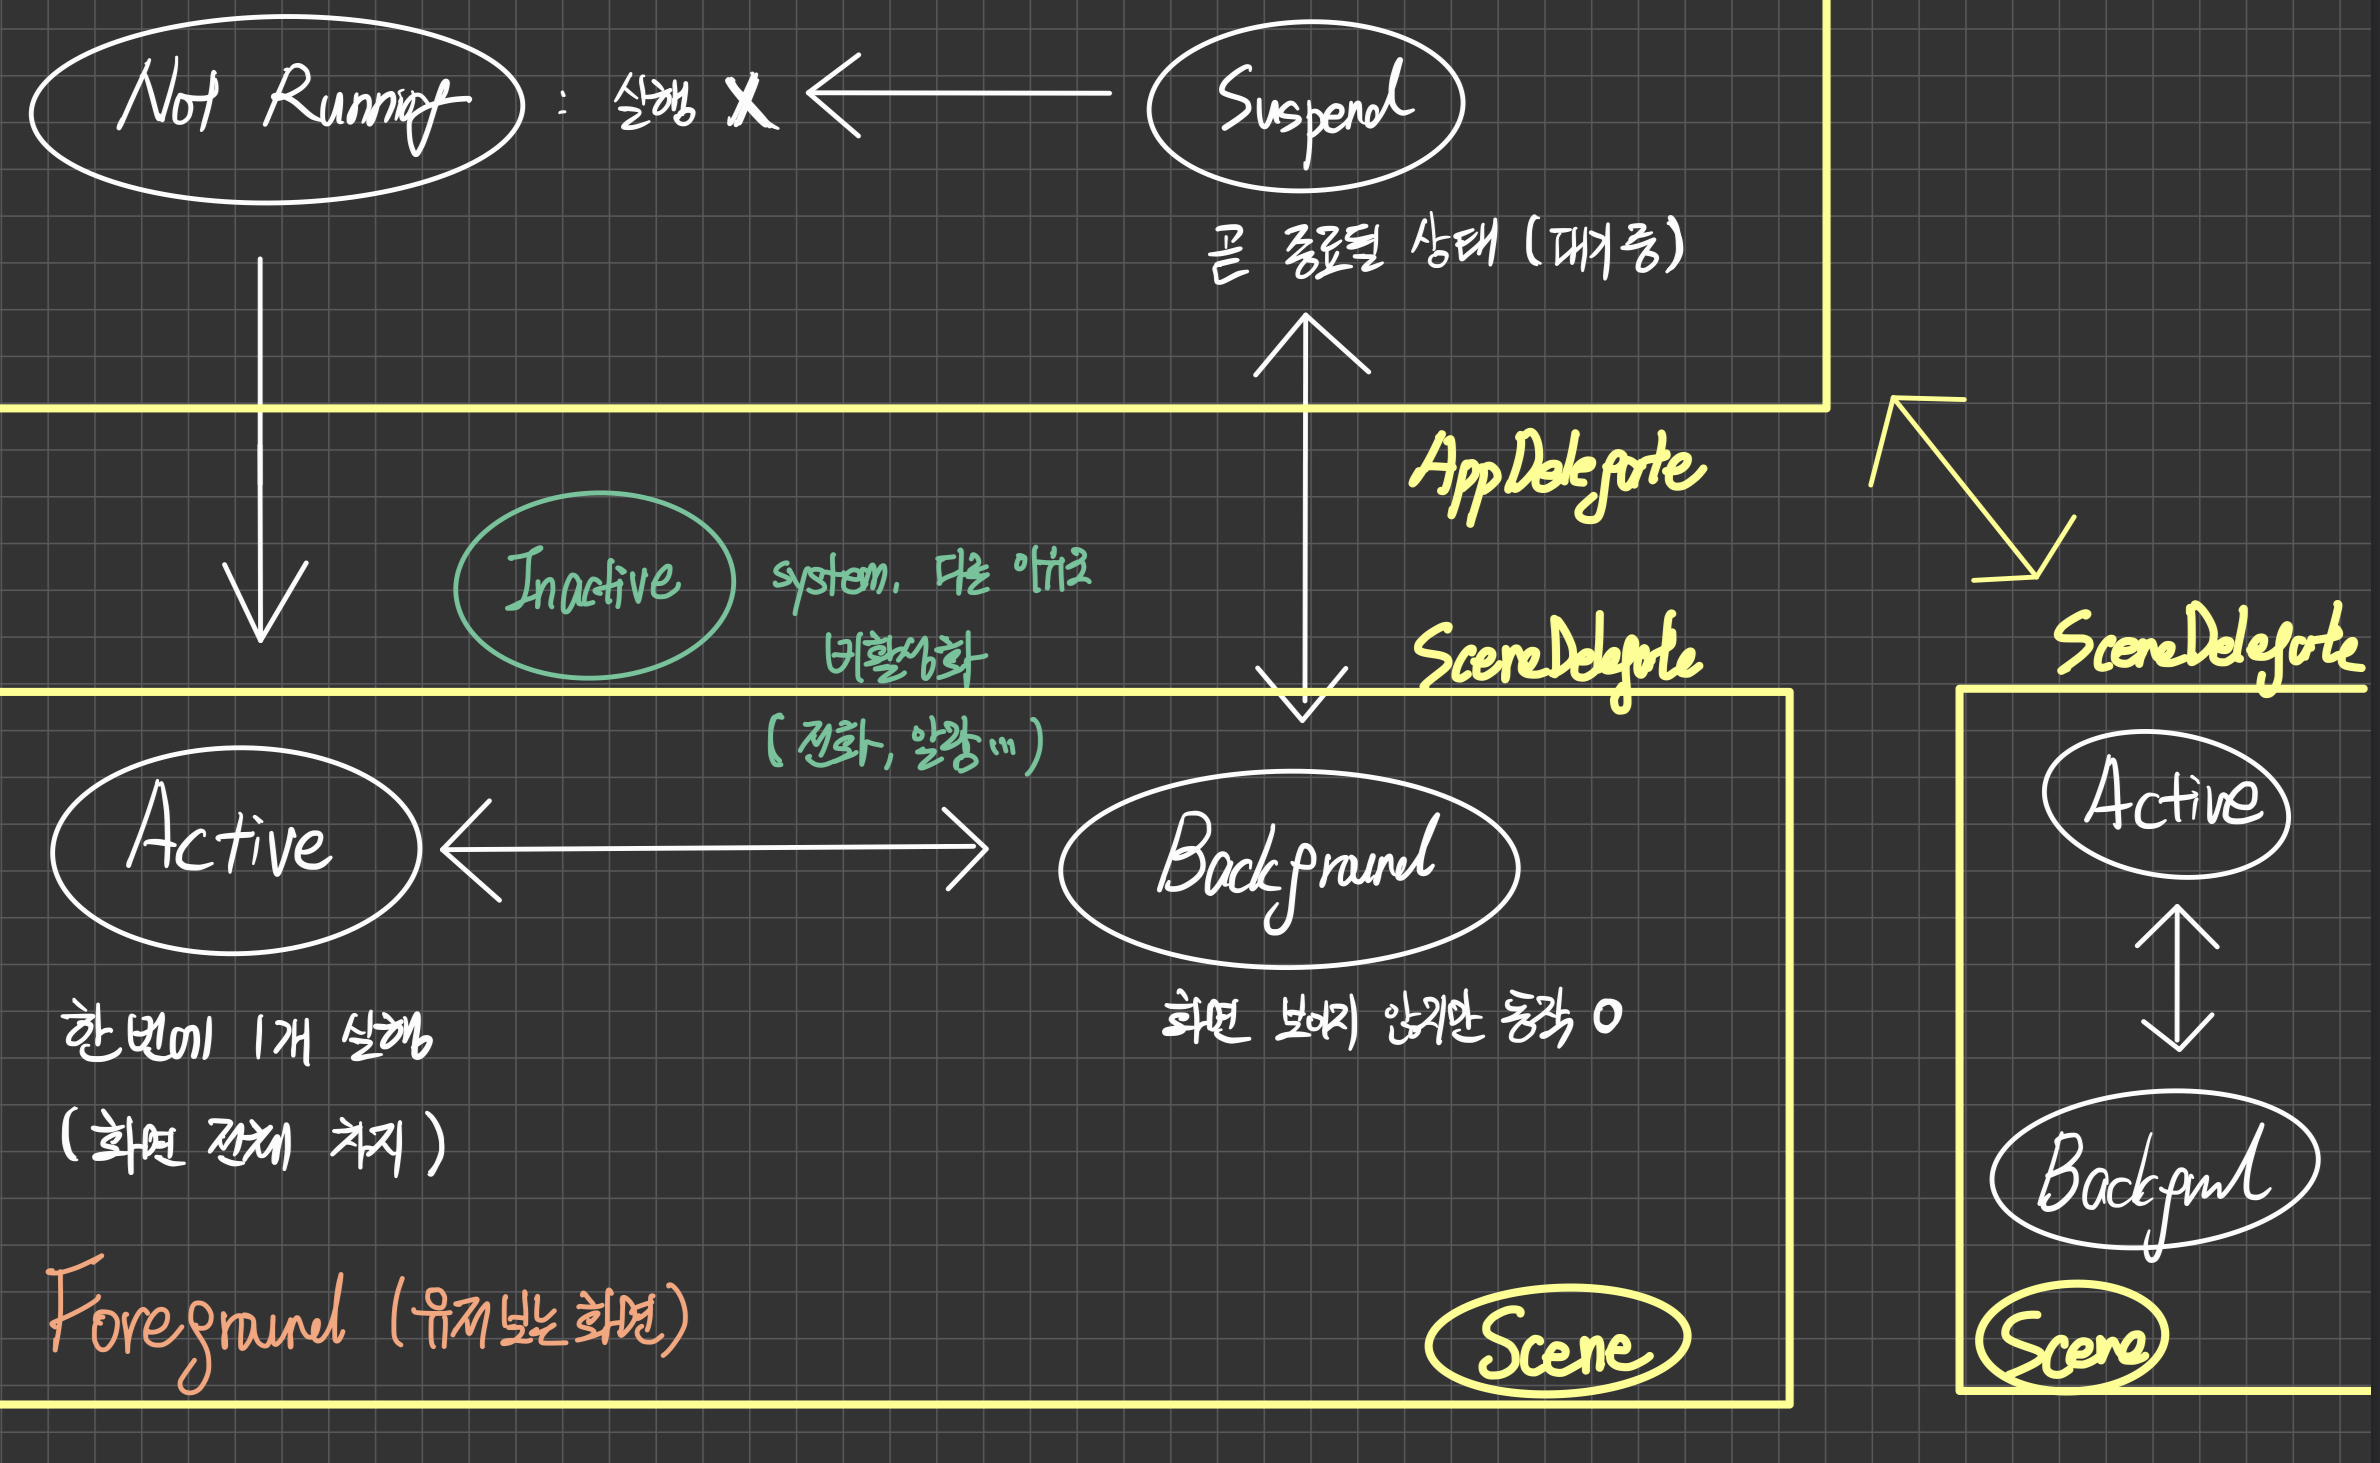 Not Running : 실행 X
Suspend
곧 종료될 상태 (대기 중)
AppDelegate
Inactive
system, 다른 이유로
비활성화
(전화, 알람 ...)
SceneDelegate
SceneDelegate
Active
Background
한번에 1개 실행
(화면 전체 차지)
화면 보이지 않지만 동작 O
Foreground (유저 보는 화면)
Scene
Active
Background
Scene